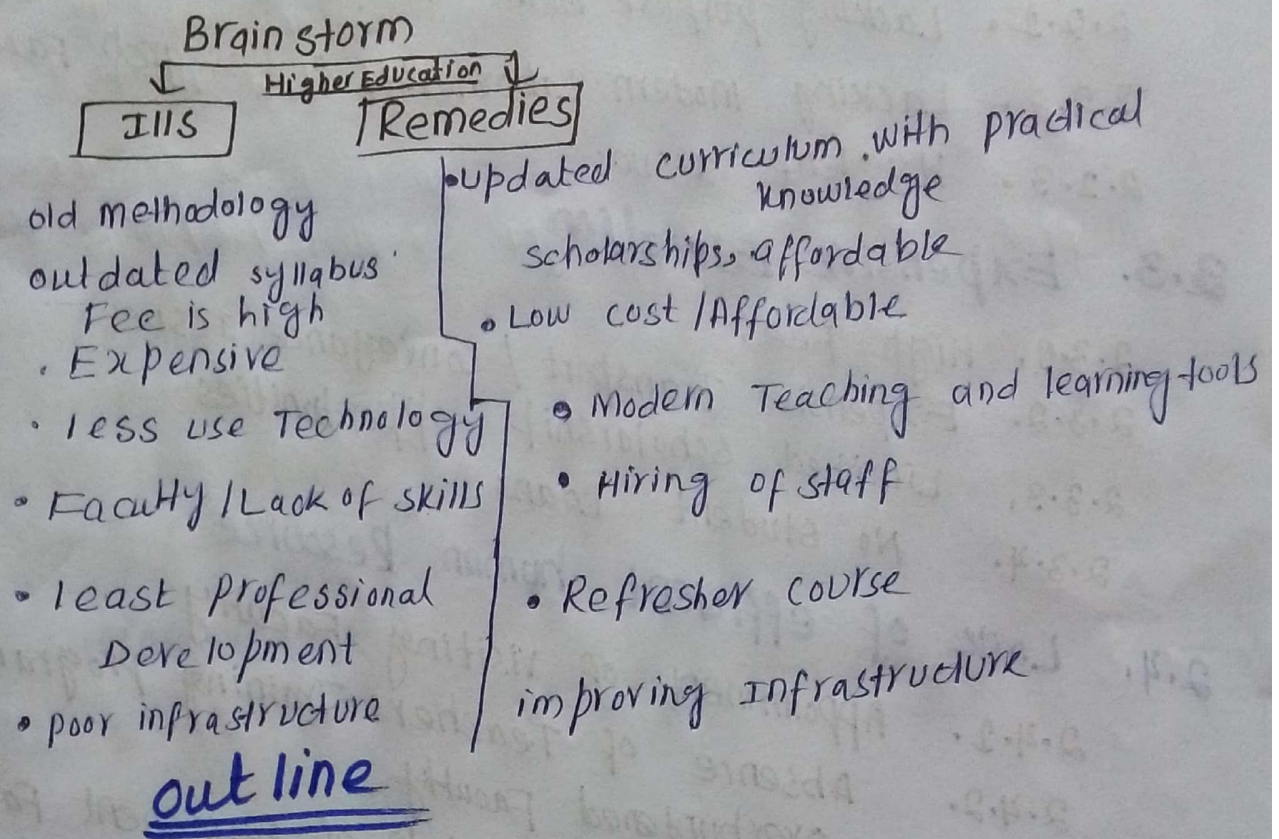 Brain storm
Higher Education
Ills
Remedies
old methodology
outdated syllabus
Fee is high
• Expensive
• less use Technology
• Faculty / Lack of skills
• least professional
Development
• poor infrastructure
• updated curriculum with practical
knowledge
scholarships, affordable
• Low cost / Affordable
• Modern Teaching and learning tools
• Hiring of staff
• Refresher course
improving Infrastructure
outline